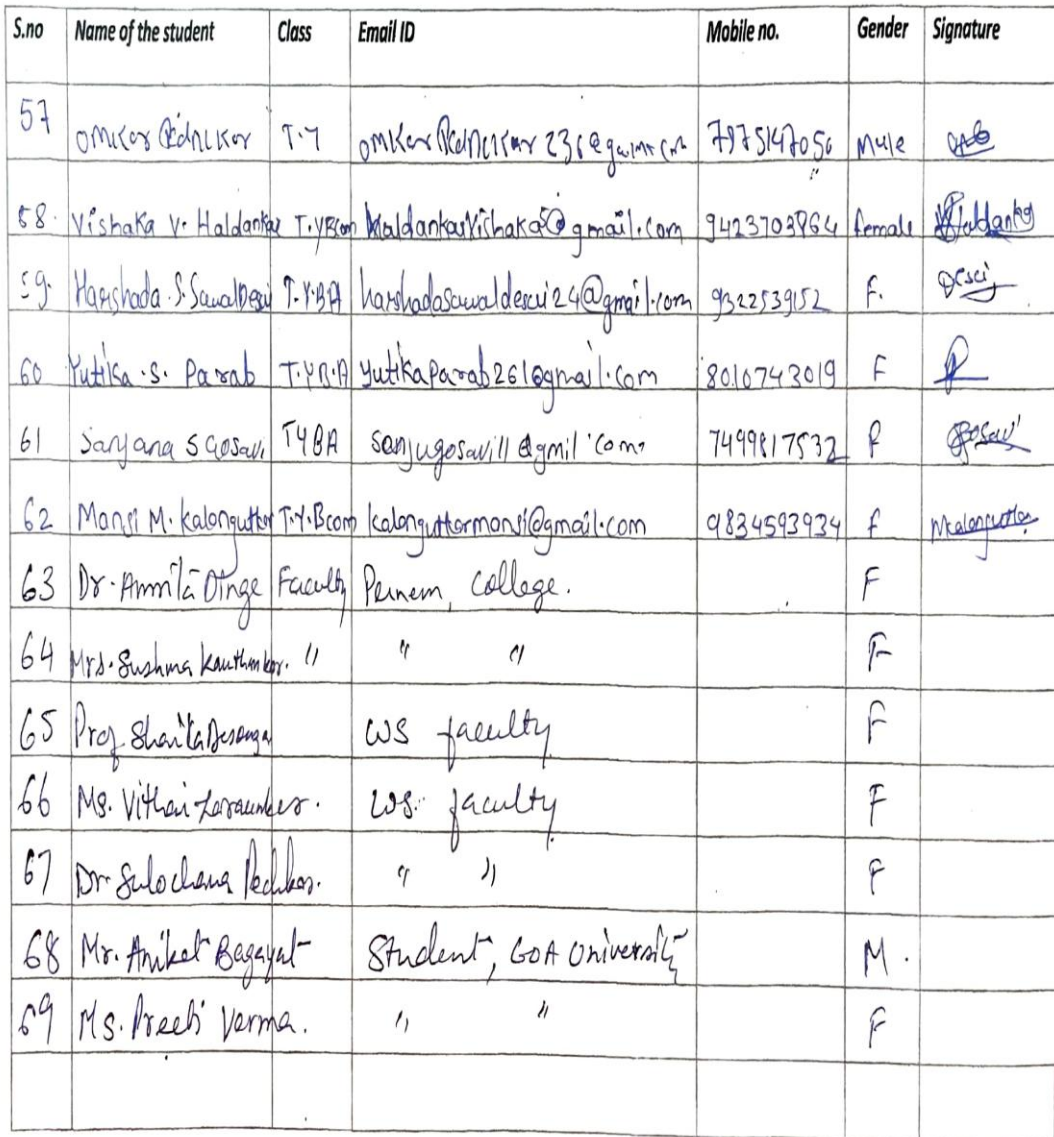 S.no Name of the student Class Email ID Mobile no. Gender Signature
57 Omkar Pednekar T.Y 7975147050 Male
58. Vishaka V. Haldankar T.YBcom haldankarvishaka5@gmail.com 9423703964 female VHaldankar
59. Harshada.S.SawalDesai T.Y.BA harshadasawaldesai24@gmail.com 9322539152 F. Desai
60 Yutika.S. Parab T.Y.B.A yutikaparab261@gmail.com 8010743019 F
61 Sanjana S Gosavi TYBA sanjugosavi11@gmil.com 7499817532 F Gosavi
62 Mansi M. kalangutkar T.Y.Bcom kalangutkarmansi@gmail.com 9834593934 f Mkalangutkar
63 Dr. Dinge Faculty Pernem, College. F
64 Mrs. Sushma Kauthankar. " " " F
65 Prof WS faculty F
66 Ms. Vithai WS. faculty F
67 Dr Sulochana Pednekar. " " F
68 Mr. Aniket Bagayat Student, GOA University M.
69 Ms. Preeti Verma. " " F